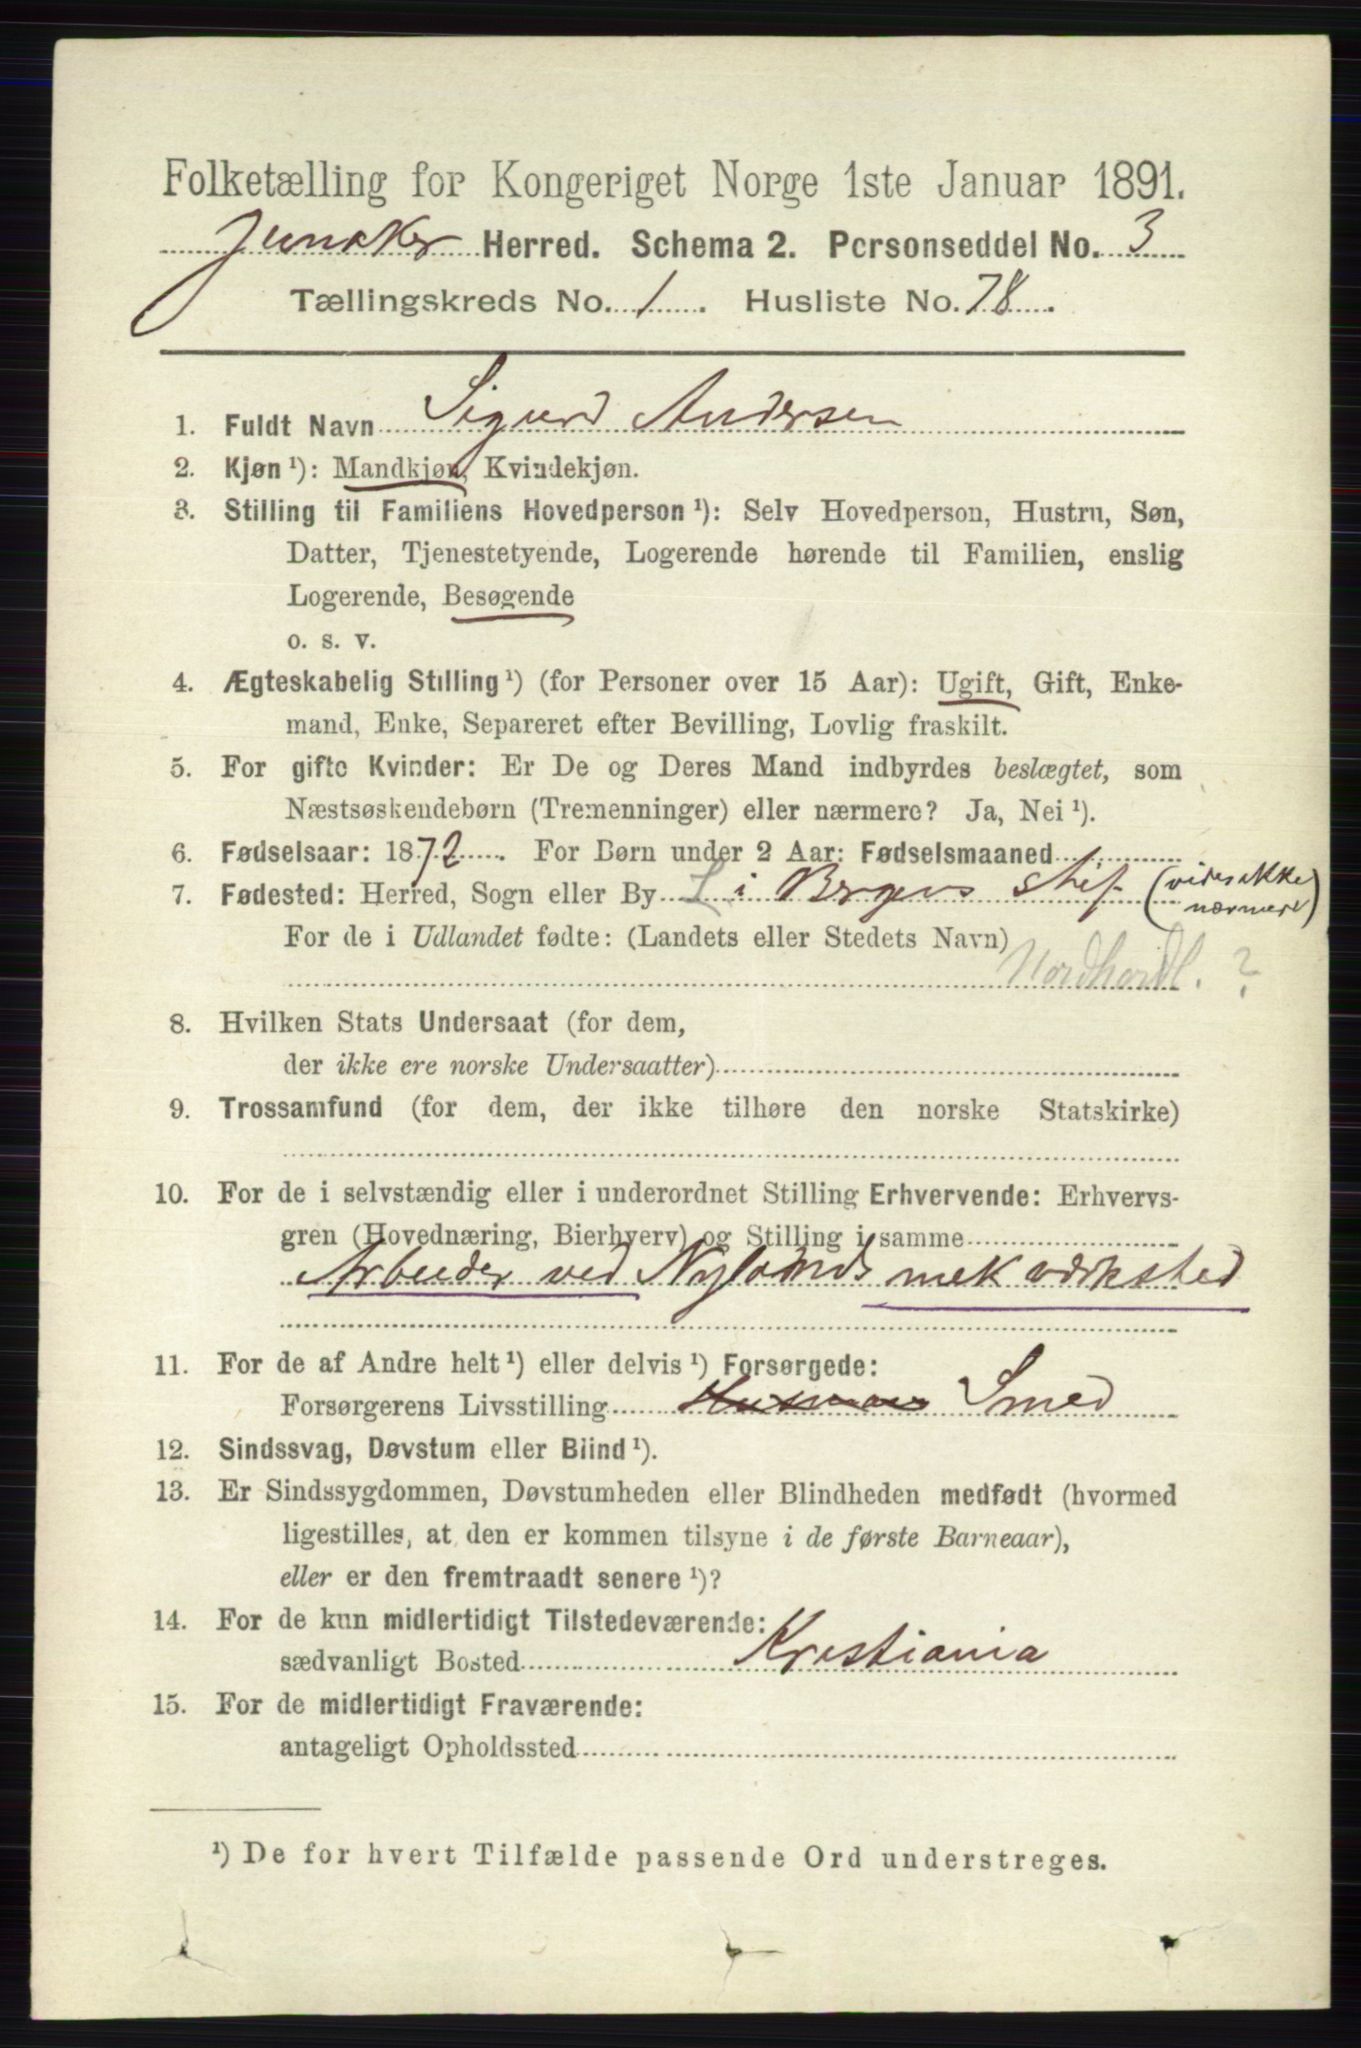 Folketælling for Kongeriget Norge 1ste Januar 1891.
Jevnaker Herred. Schema 2. Personseddel No. 3
Tællingskreds No. 1. Husliste No. 78.
1. Fuldt Navn Sigurd Andersen
2. Kjøn ¹): Mandkjøn, Kvindekjøn.
3. Stilling til Familiens Hovedperson ¹): Selv Hovedperson, Hustru, Søn,
Datter, Tjenestetyende, Logerende hørende til Familien, enslig
Logerende, Besøgende
o. s. v.
4. Ægteskabelig Stilling ¹) (for Personer over 15 Aar): Ugift, Gift, Enke-
mand, Enke, Separeret efter Bevilling, Lovlig fraskilt.
5. For gifte Kvinder: Er De og Deres Mand indbyrdes beslægtet, som
Næstsøskendebørn (Tremenninger) eller nærmere? Ja, Nei ¹).
6. Fødselsaar: 1872. For Børn under 2 Aar: Fødselsmaaned
7. Fødested: Herred, Sogn eller By L i Bergens stif (vides ikke
nærmere)
For de i Udlandet fødte: (Landets eller Stedets Navn)
Nordhordl. ?
8. Hvilken Stats Undersaat (for dem,
der ikke ere norske Undersaatter)
9. Trossamfund (for dem, der ikke tilhøre den norske Statskirke)
10. For de i selvstændig eller i underordnet Stilling Erhvervende: Erhvervs-
gren (Hovednæring, Bierhverv) og Stilling i samme
Arbeider ved Nylands mek værksted
11. For de af Andre helt ¹) eller delvis ¹) Forsørgede:
Forsørgerens Livsstilling Husmand Smed
12. Sindssvag, Døvstum eller Blind ¹).
13. Er Sindssygdommen, Døvstumheden eller Blindheden medfødt (hvormed
ligestilles, at den er kommen tilsyne i de første Barneaar),
eller er den fremtraadt senere ¹)?
14. For de kun midlertidigt Tilstedeværende:
sædvanligt Bosted Kristiania
15. For de midlertidigt Fraværende:
antageligt Opholdssted
¹) De for hvert Tilfælde passende Ord understreges.